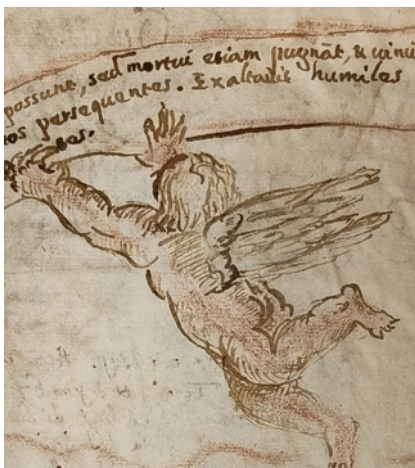 possunt, sed mortui etiam pugnāt, & vinu
os persequentes. Exaltavit humiles
tes.